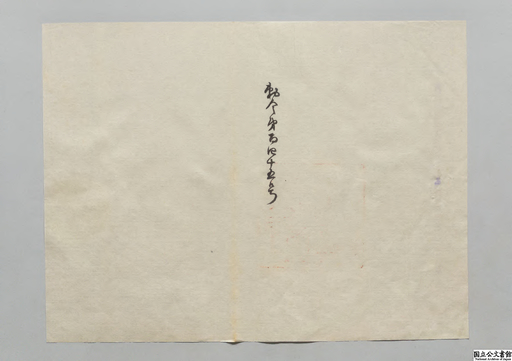 勅令第百四十五号
国立公文書館
National Archives of Japan